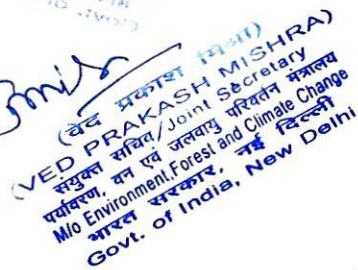 (वेद प्रकाश मिश्रा)
(VED PRAKASH MISHRA)
संयुक्त सचिव/Joint Secretary
पर्यावरण, वन एवं जलवायु परिवर्तन मंत्रालय
M/o Environment,Forest and Climate Change
भारत सरकार, नई दिल्ली
Govt. of India, New Delhi